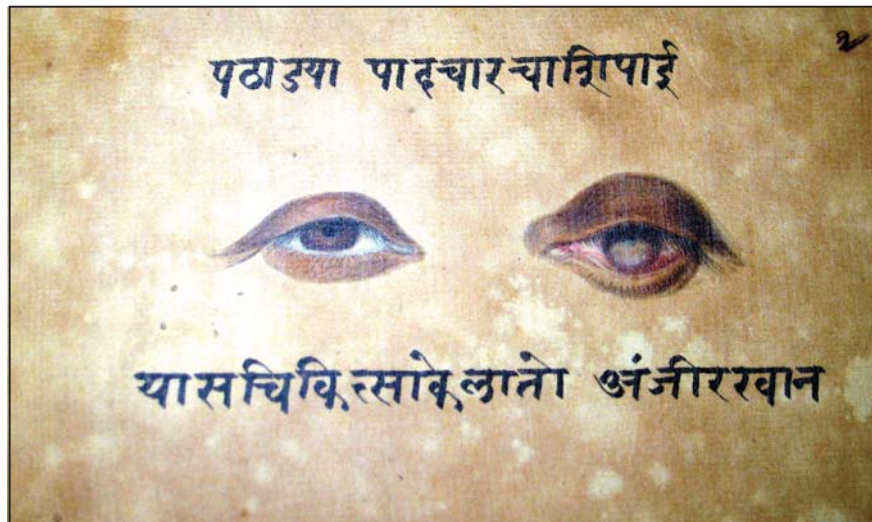 २
पठाडया पादचारचाशिपाई
यासचिकित्साकेलातो अंजीरखान